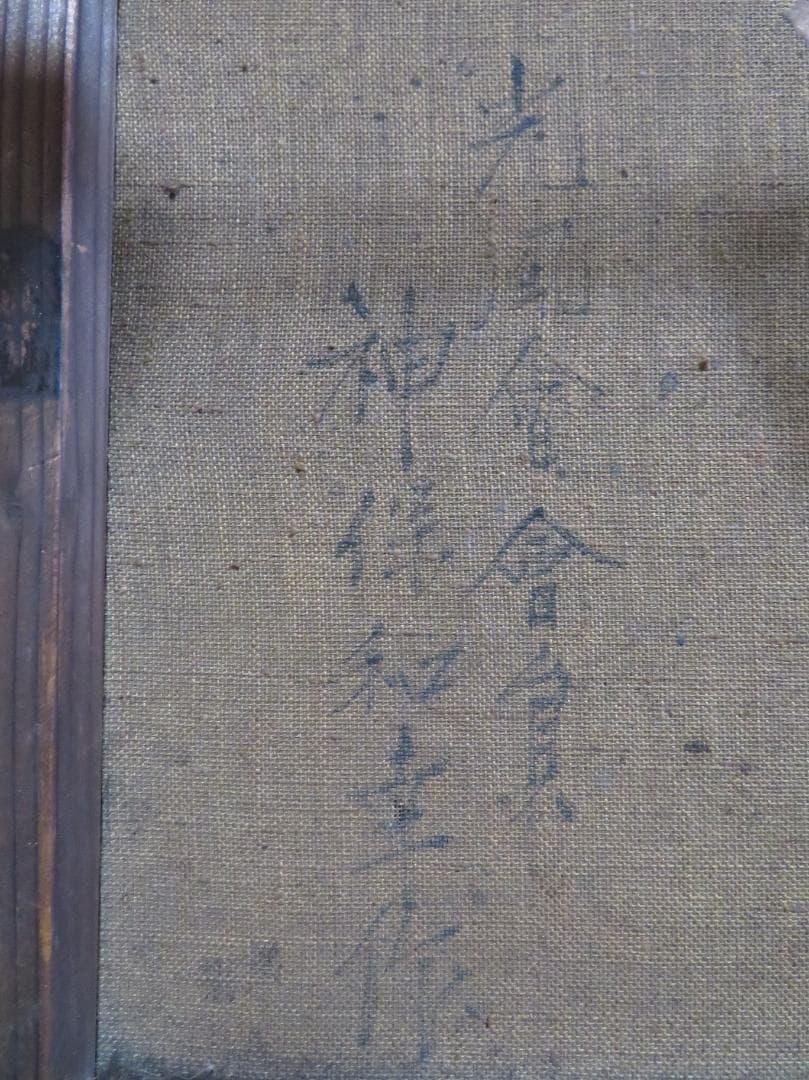 光風會會員
神保和幸作